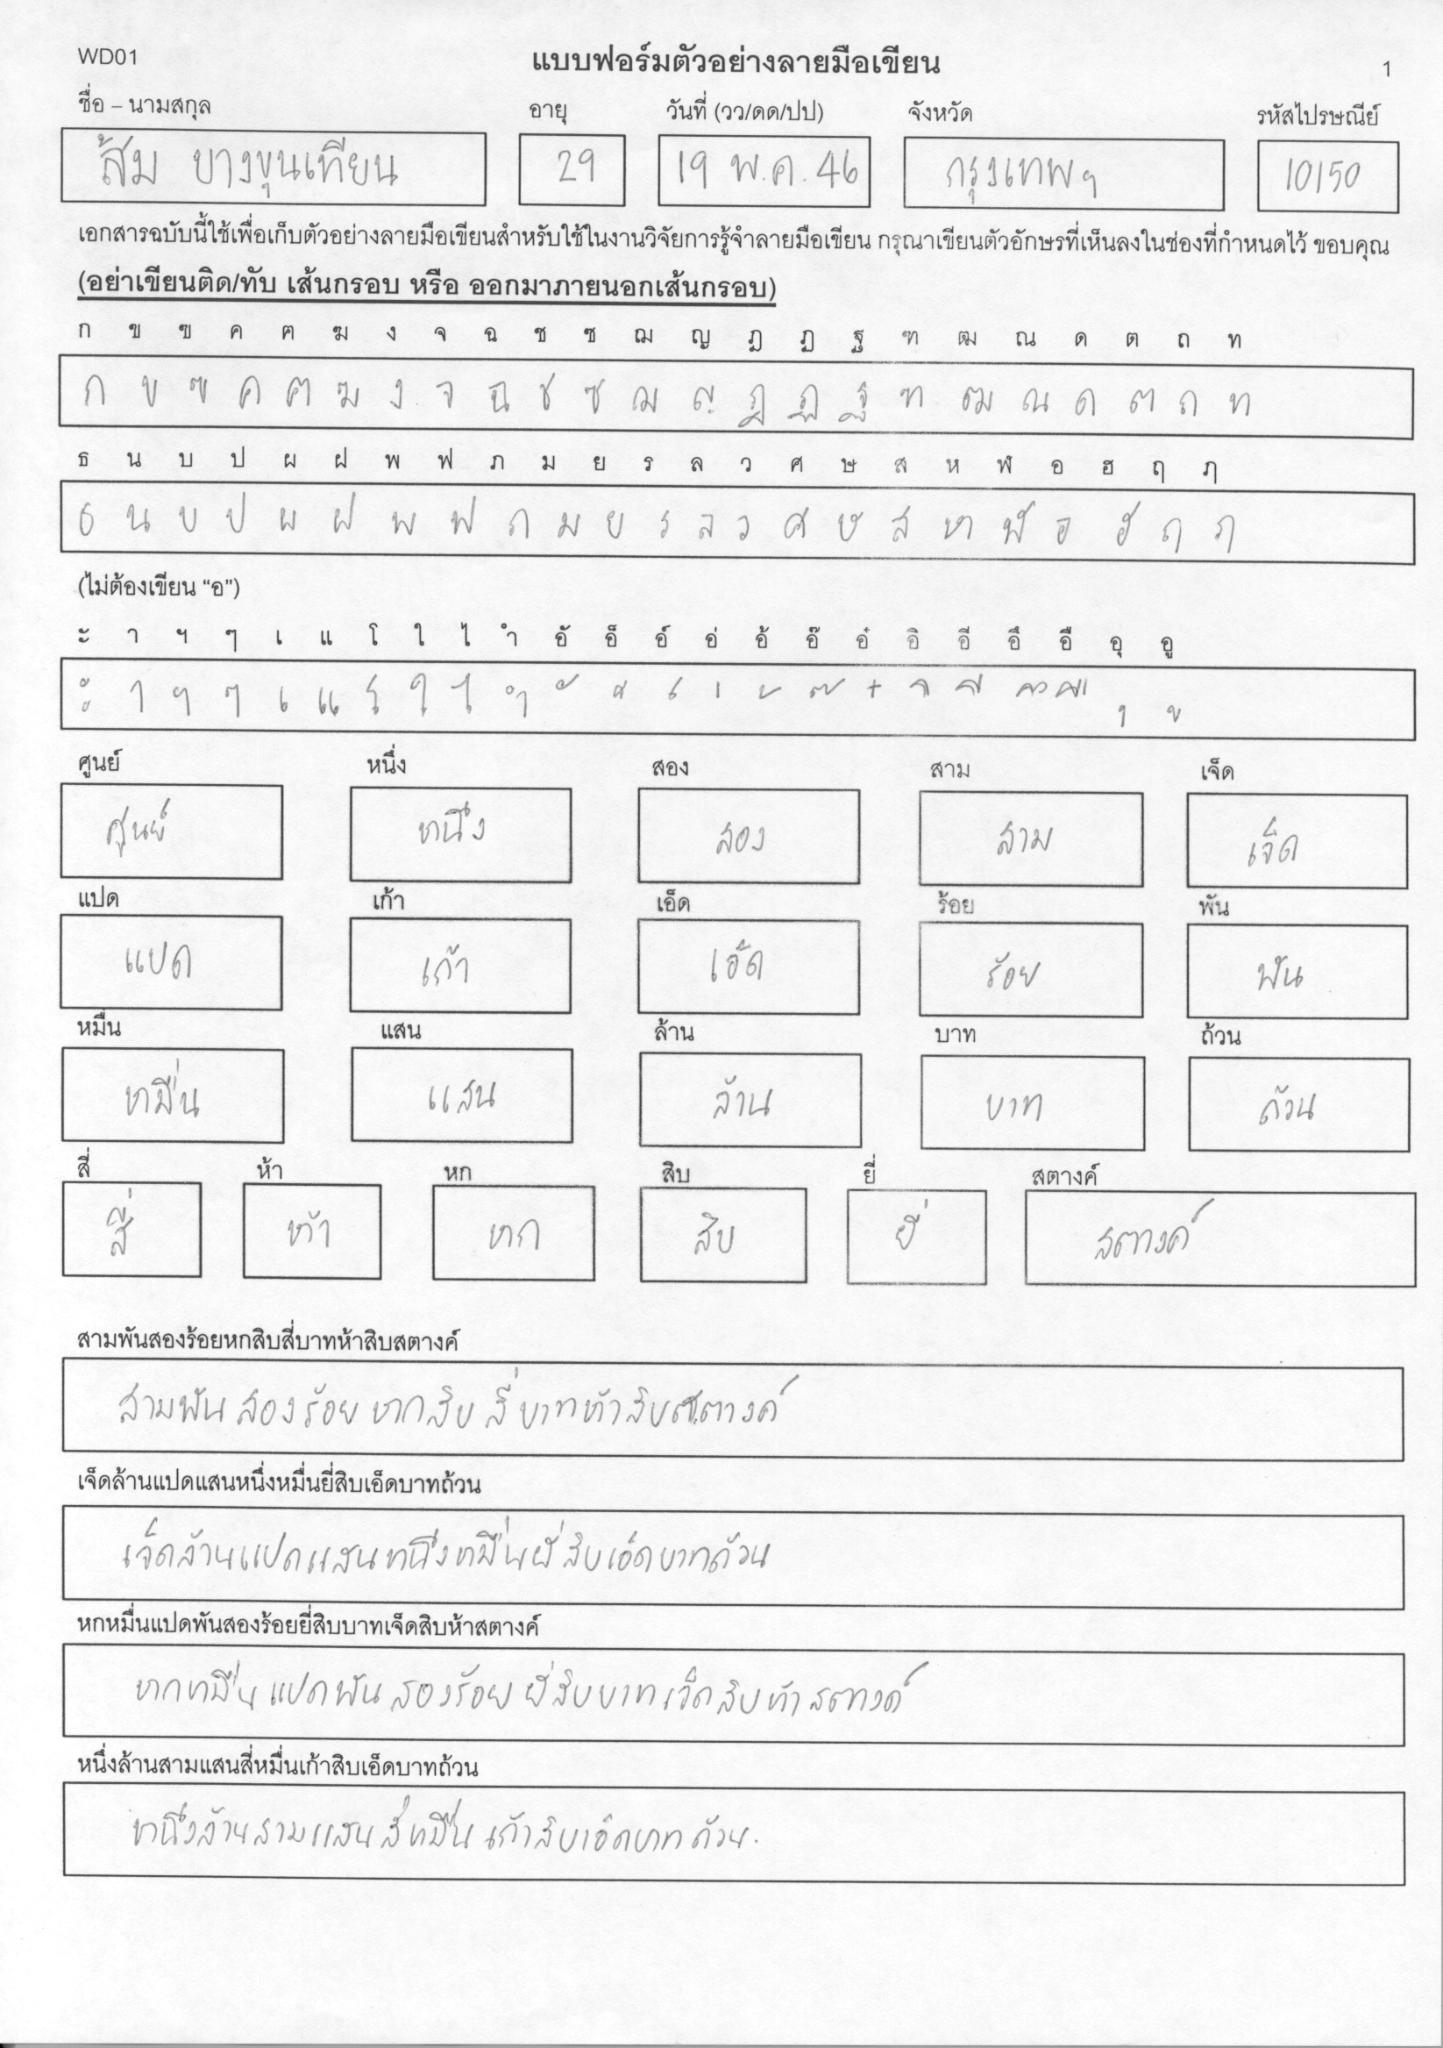 WD01 แบบฟอร์มตัวอย่างลายมือเขียน 1
ชื่อ – นามสกุล อายุ วันที่ (วว/ดด/ปป) จังหวัด รหัสไปรษณีย์
ส้ม บางขุนเทียน 29 19 พ.ค. 46 กรุงเทพฯ 10150
เอกสารฉบับนี้ใช้เพื่อเก็บตัวอย่างลายมือเขียนสำหรับใช้ในงานวิจัยการรู้จำลายมือเขียน กรุณาเขียนตัวอักษรที่เห็นลงในช่องที่กำหนดไว้ ขอบคุณ
(อย่าเขียนติด/ทับ เส้นกรอบ หรือ ออกมาภายนอกเส้นกรอบ)
ก ข ฃ ค ฅ ฆ ง จ ฉ ช ซ ฌ ญ ฎ ฏ ฐ ฑ ฒ ณ ด ต ถ ท
ก ข ฃ ค ฅ ฆ ง จ ฉ ช ซ ฌ ญ ฎ ฏ ฐ ฑ ฒ ณ ด ต ถ ท
ธ น บ ป ผ ฝ พ ฟ ภ ม ย ร ล ว ศ ษ ส ห ฬ อ ฮ ฤ ฦ
ธ น บ ป ผ ฝ พ ฟ ภ ม ย ร ล ว ศ ษ ส ห ฬ อ ฮ ฤ ฦ
(ไม่ต้องเขียน “อ”)
ะ า ฯ ๆ เ แ โ ใ ไ ำ อั อ็ อ์ อ่ อ้ อ๊ อ๋ อิ อี อึ อื อุ อู
ะ า ฯ ๆ เ แ โ ใ ไ ำ ั ็ ์ ่ ้ ๊ ๋ ิ ี ึ ื ุ ู
ศูนย์ หนึ่ง สอง สาม เจ็ด
ศูนย์ หนึ่ง สอง สาม เจ็ด
แปด เก้า เอ็ด ร้อย พัน
แปด เก้า เอ็ด ร้อย พัน
หมื่น แสน ล้าน บาท ถ้วน
หมื่น แสน ล้าน บาท ถ้วน
สี่ ห้า หก สิบ ยี่ สตางค์
สี่ ห้า หก สิบ ยี่ สตางค์
สามพันสองร้อยหกสิบสี่บาทห้าสิบสตางค์
สามพันสองร้อยหกสิบสี่บาทห้าสิบสตางค์
เจ็ดล้านแปดแสนหนึ่งหมื่นยี่สิบเอ็ดบาทถ้วน
เจ็ดล้านแปดแสนหนึ่งหมื่นยี่สิบเอ็ดบาทถ้วน
หกหมื่นแปดพันสองร้อยยี่สิบบาทเจ็ดสิบห้าสตางค์
หกหมื่นแปดพันสองร้อยยี่สิบบาทเจ็ดสิบห้าสตางค์
หนึ่งล้านสามแสนสี่หมื่นเก้าสิบเอ็ดบาทถ้วน
หนึ่งล้านสามแสนสี่หมื่นเก้าสิบเอ็ดบาทถ้วน.